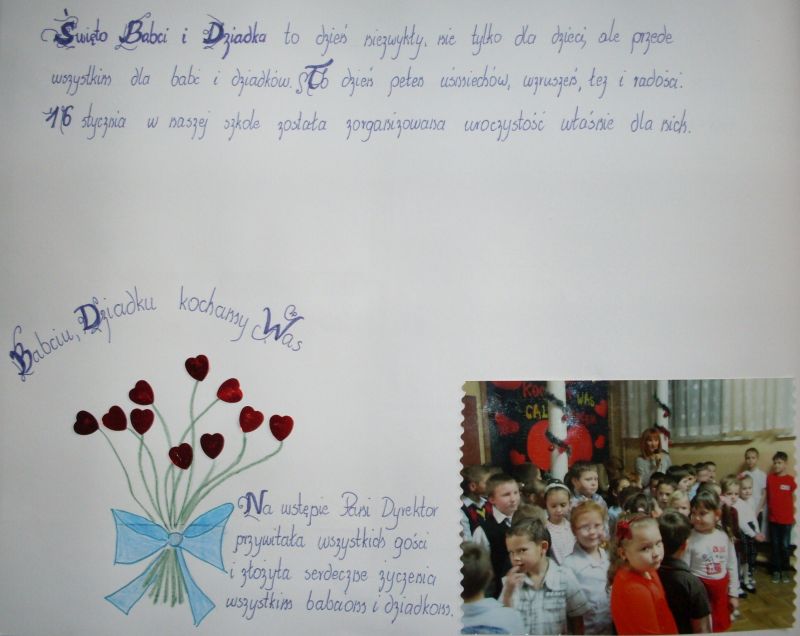 Święto Babci i Dziadka to dzień niezwykły, nie tylko dla dzieci, ale przede
wszystkim dla babć i dziadków. To dzień pełen uśmiechów, wzruszeń, łez i radości.
16 stycznia w naszej szkole została zorganizowana uroczystość właśnie dla nich.
Babciu, Dziadku kochamy Was
Na wstępie Pani Dyrektor
przywitała wszystkich gości
i złożyła serdeczne życzenia
wszystkim babciom i dziadkom.
WAS